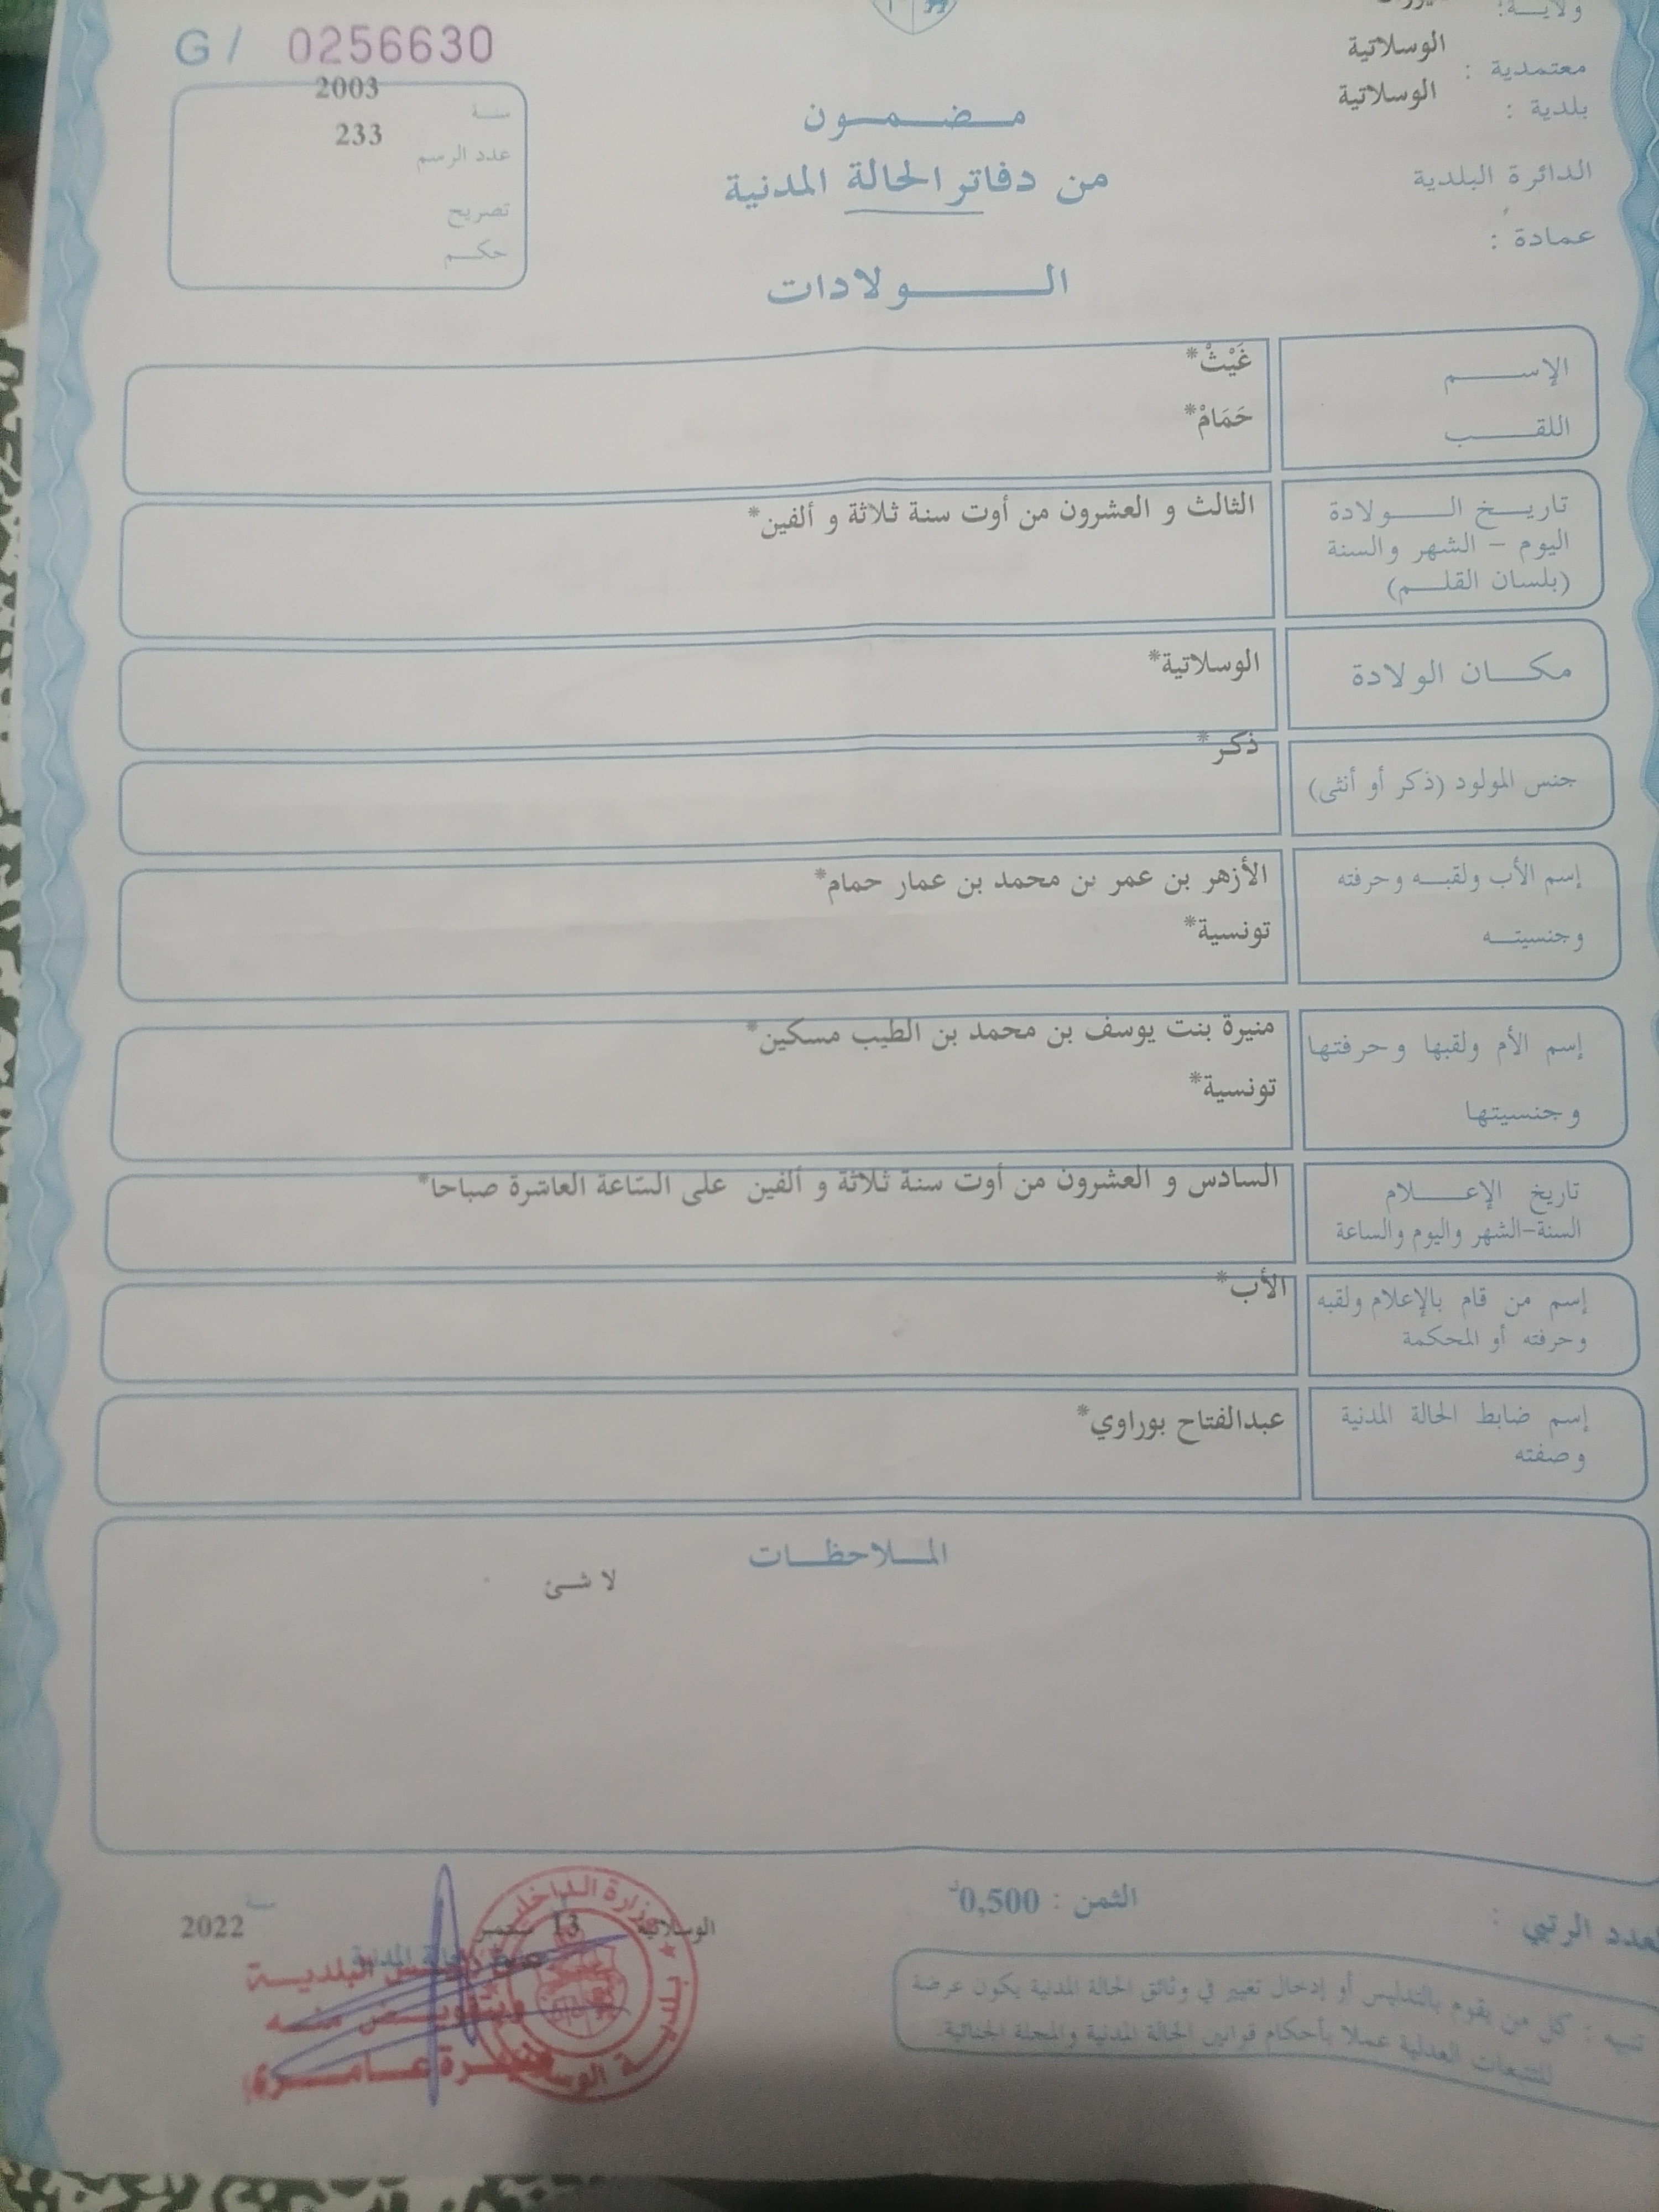 G / 0256630
ولايـــة:
معتمدية : الوسلاتية
بلدية : الوسلاتية
الدائرة البلدية
عمادة :
2003
سنـة
عدد الرسم 233
تصريح
حكـــم
مـــضـــمـــون
من دفاتر الحالة المدنية
الــــــولادات
الإســــــم غَيْثْ*
اللقــــــب حَمَامْ*
تاريــخ الـــــولادة الثالث و العشرون من أوت سنة ثلاثة و ألفين*
اليوم – الشهر والسنة
(بلسان القلـــم)
مكـــان الولادة الوسلاتية*
جنس المولود (ذكر أو أنثى) ذكر*
إسم الأب ولقبـــه وحرفته الأزهر بن عمر بن محمد بن عمار حمام*
وجنسيتـــه تونسية*
إسم الأم ولقبها وحرفتها منيرة بنت يوسف بن محمد بن الطيب مسكين*
وجنسيتها تونسية*
تاريخ الإعـــــلام السادس و العشرون من أوت سنة ثلاثة و ألفين على السّاعة العاشرة صباحا*
السنة-الشهر واليوم والساعة
إسم من قام بالإعلام ولقبه الأب*
وحرفته أو المحكمة
إسم ضابط الحالة المدنية عبدالفتاح بوراوي*
وصفته
المـــلاحظـــات
لا شئ
الثمن : 0,500د
الوسلاتية 13 سنـة 2022
العدد الرتبي :
تنبيه : كل من يقوم بالتدليس أو إدخال تغيير في وثائق الحالة المدنية يكون عرضة
للتتبعات العدلية عملا بأحكام قوانين الحالة المدنية والمجلة الجنائية.
وزارة الداخلية
البلديـــة
وبتفويـــض منـــه
عـامـــرة